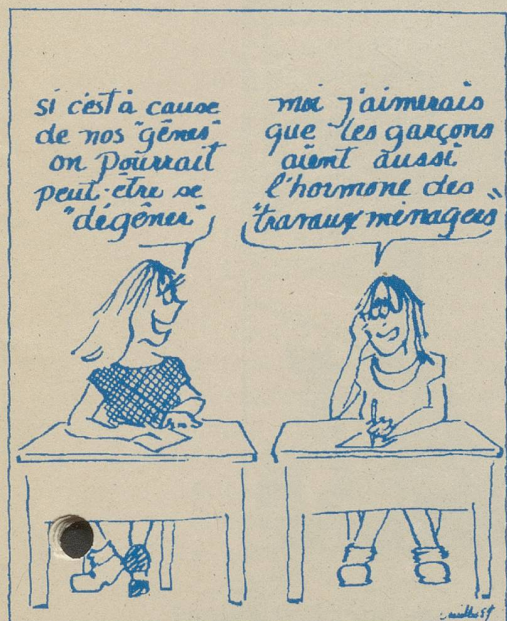 si c'est à cause
de nos "gênes"
on pourrait
peut-être se
"dégêner"
moi j'aimerais
que les garçons
aient aussi
l'hormone des
"travaux ménagers"